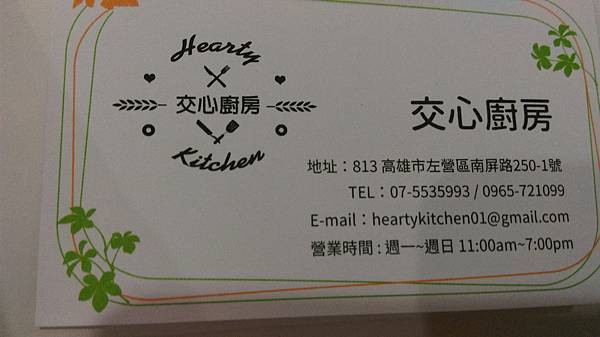 Hearty
交心廚房
Kitchen
交心廚房
地址：813 高雄市左營區南屏路250-1號
TEL：07-5535993 / 0965-721099
E-mail：heartykitchen01@gmail.com
營業時間 : 週一~週日 11:00am~7:00pm